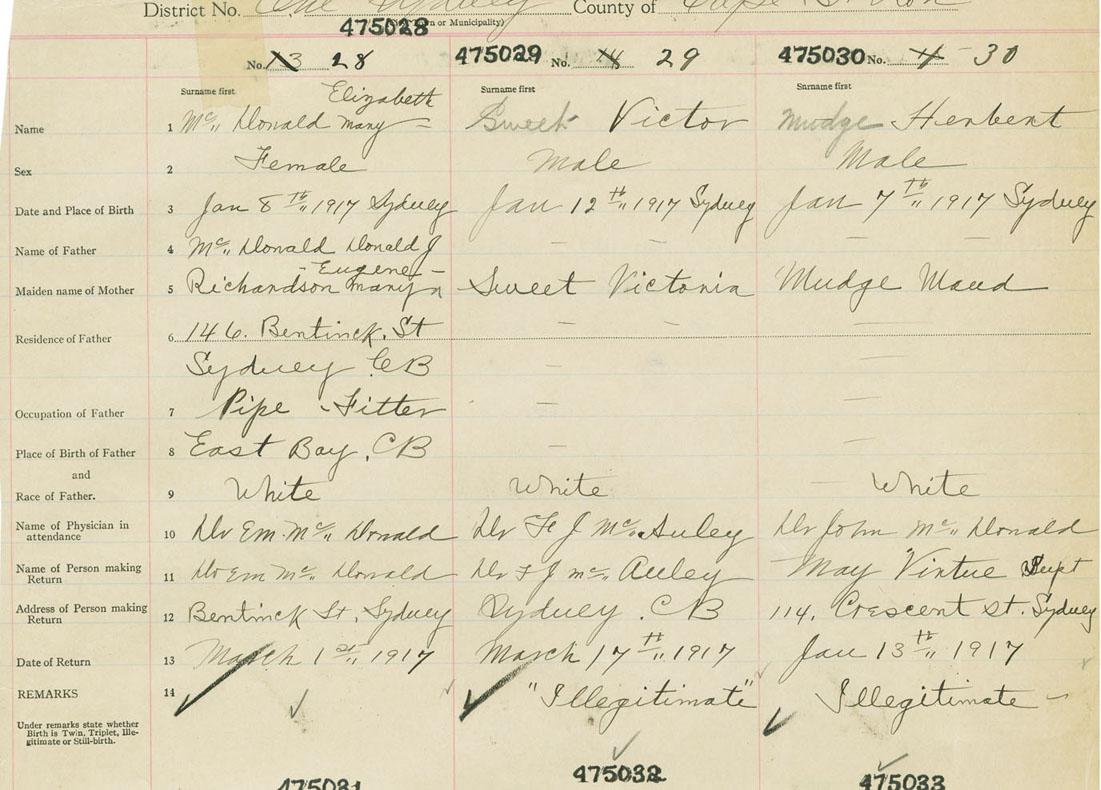 District No. One Sydney County of Cape Breton
(Town or Municipality)
475028
No. 13 28 475029 No. 14 29 475030 No. 30
Surname first Surname first Surname first
Elizabeth
Name 1 Mc Donald Mary Sweet Victor Mudge Herbert
Sex 2 Female Male Male
Date and Place of Birth 3 Jan 8th 1917 Sydney Jan 12th 1917 Sydney Jan 7th 1917 Sydney
Name of Father 4 Mc Donald Donald J — — — —
Eugene
Maiden name of Mother 5 Richardson Mary Sweet Victoria Mudge Maud
Residence of Father 6 146. Bentinck. St — — —
Sydney C.B — —
Occupation of Father 7 Pipe - Fitter — —
Place of Birth of Father 8 East Bay, CB — —
and
Race of Father. 9 White White White
Name of Physician in
attendance 10 Dr Em. Mc Donald Dr F J Mc Auley Dr John Mc Donald
Name of Person making
Return 11 Dr Em Mc Donald Dr F J Mc Auley May Virtue Supt
Address of Person making
Return 12 Bentinck St. Sydney Sydney. CB 114. Crescent St. Sydney
Date of Return 13 March 1st 1917 March 17th 1917 Jan 13th 1917
REMARKS 14 "Illegitimate" Illegitimate —
Under remarks state whether
Birth is Twin, Triplet, Ille-
gitimate or Still-birth.
475031 475032 475033